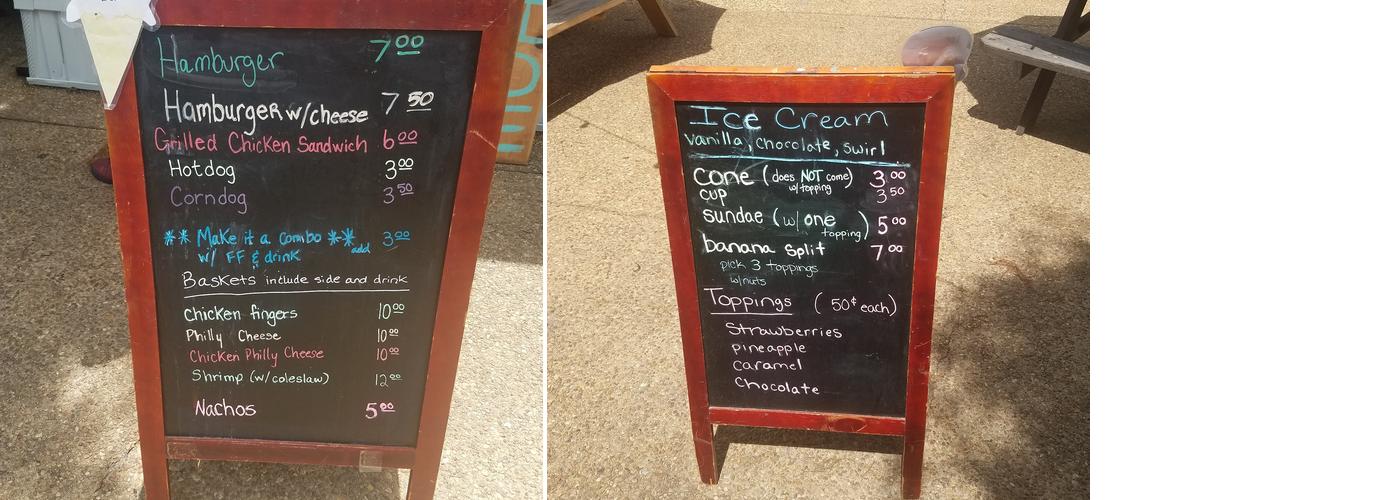 Hamburger 7 00
Hamburger w/cheese 7 50
Grilled Chicken Sandwich 6 00
Hotdog 3 00
Corndog 3 50
** Make it a combo ** add 3 00
w/ FF & drink
Baskets include side and drink
Chicken fingers 10 00
Philly Cheese 10 00
Chicken Philly Cheese 10 00
Shrimp (w/coleslaw) 12 00
Nachos 5 00
Ice Cream
vanilla, chocolate, swirl
cone (does NOT come w/topping) 3 00
cup 3 50
sundae (w/ one topping) 5 00
banana split 7 00
pick 3 toppings
w/nuts
Toppings (50¢ each)
Strawberries
pineapple
caramel
Chocolate